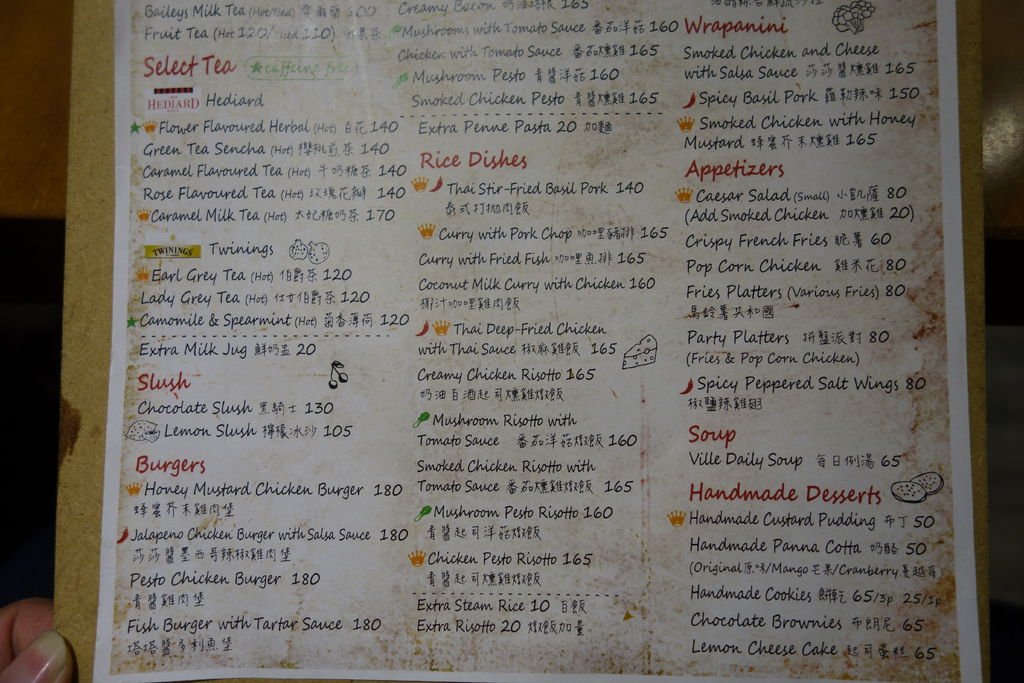 Baileys Milk Tea (Hot/Iced) 100
Fruit Tea (Hot 120/Iced 110) 水果茶
Select Tea ★caffeine free
HEDIARD Hediard
Flower Flavoured Herbal (Hot) 百花 140
Green Tea Sencha (Hot) 櫻桃煎茶 140
Caramel Flavoured Tea (Hot) 牛奶糖茶 140
Rose Flavoured Tea (Hot) 玫瑰花瓣 140
Caramel Milk Tea (Hot) 太妃糖奶茶 170
TWININGS Twinings
Earl Grey Tea (Hot) 伯爵茶 120
Lady Grey Tea (Hot) 仕女伯爵茶 120
Camomile & Spearmint (Hot) 菊香薄荷 120
Extra Milk Jug 鮮奶盅 20
Slush
Chocolate Slush 黑騎士 130
Lemon Slush 檸檬冰沙 105
Burgers
Honey Mustard Chicken Burger 180
蜂蜜芥末雞肉堡
Jalapeno Chicken Burger with Salsa Sauce 180
莎莎醬墨西哥辣椒雞肉堡
Pesto Chicken Burger 180
青醬雞肉堡
Fish Burger with Tartar Sauce 180
塔塔醬多利魚堡
Creamy Bacon 奶油培根 165
Mushrooms with Tomato Sauce 番茄洋菇 160
Chicken with Tomato Sauce 番茄燻雞 165
Mushroom Pesto 青醬洋菇 160
Smoked Chicken Pesto 青醬燻雞 165
Extra Penne Pasta 20 加麵
Rice Dishes
Thai Stir-Fried Basil Pork 140
泰式打拋肉飯
Curry with Pork Chop 咖哩豬排 165
Curry with Fried Fish 咖哩魚排 165
Coconut Milk Curry with Chicken 160
椰汁咖哩雞肉飯
Thai Deep-Fried Chicken
with Thai Sauce 椒麻雞飯 165
Creamy Chicken Risotto 165
奶油白酒起司燻雞燉飯
Mushroom Risotto with
Tomato Sauce 番茄洋菇燉飯 160
Smoked Chicken Risotto with
Tomato Sauce 番茄燻雞燉飯 165
Mushroom Pesto Risotto 160
青醬起司洋菇燉飯
Chicken Pesto Risotto 165
青醬起司燻雞燉飯
Extra Steam Rice 10 白飯
Extra Risotto 20 燉飯加量
Wrapanini
Smoked Chicken and Cheese
with Salsa Sauce 莎莎醬燻雞 165
Spicy Basil Pork 羅勒辣味 150
Smoked Chicken with Honey
Mustard 蜂蜜芥末燻雞 165
Appetizers
Caesar Salad (Small) 小凱薩 80
(Add Smoked Chicken 加燻雞 20)
Crispy French Fries 脆薯 60
Pop Corn Chicken 雞米花 80
Fries Platters (Various Fries) 80
馬鈴薯共和國
Party Platters 拼盤派對 80
(Fries & Pop Corn Chicken)
Spicy Peppered Salt Wings 80
椒鹽辣雞翅
Soup
Ville Daily Soup 每日例湯 65
Handmade Desserts
Handmade Custard Pudding 布丁 50
Handmade Panna Cotta 奶酪 50
(Original原味/Mango芒果/Cranberry蔓越莓)
Handmade Cookies 餅乾 65/3p 25/1p
Chocolate Brownies 布朗尼 65
Lemon Cheese Cake 起司蛋糕 65